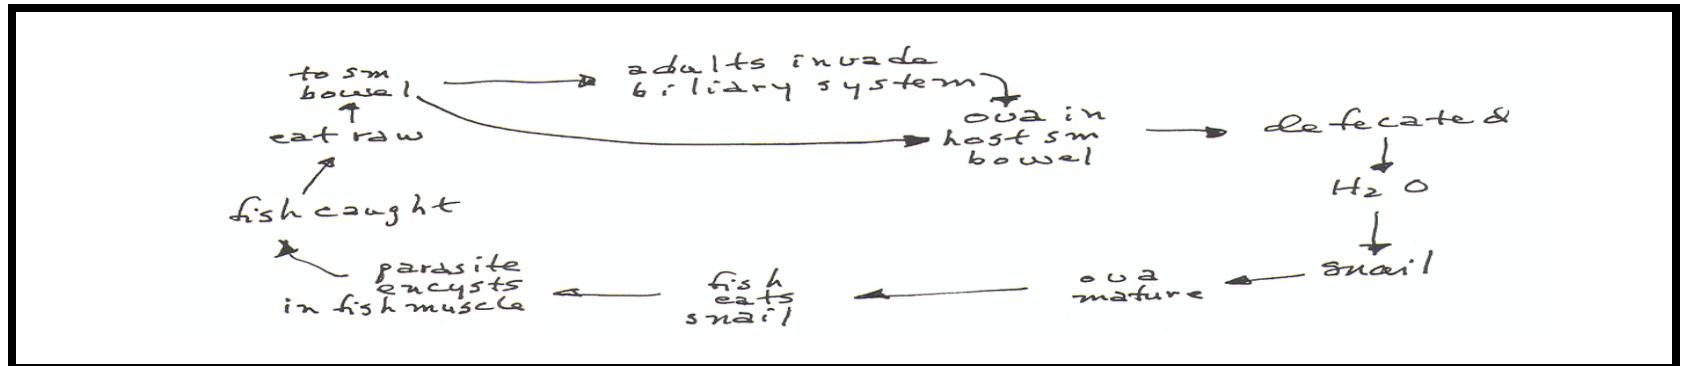 to sm
bowel
adults invade
biliary system
ova in
host sm
bowel
defecated
H2O
snail
ova
mature
fish
eats
snail
parasite
encysts
in fish muscle
fish caught
eat raw